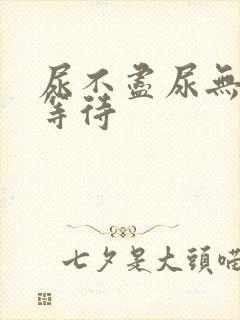 尿不盡尿無
等待
七夕是大頭喵